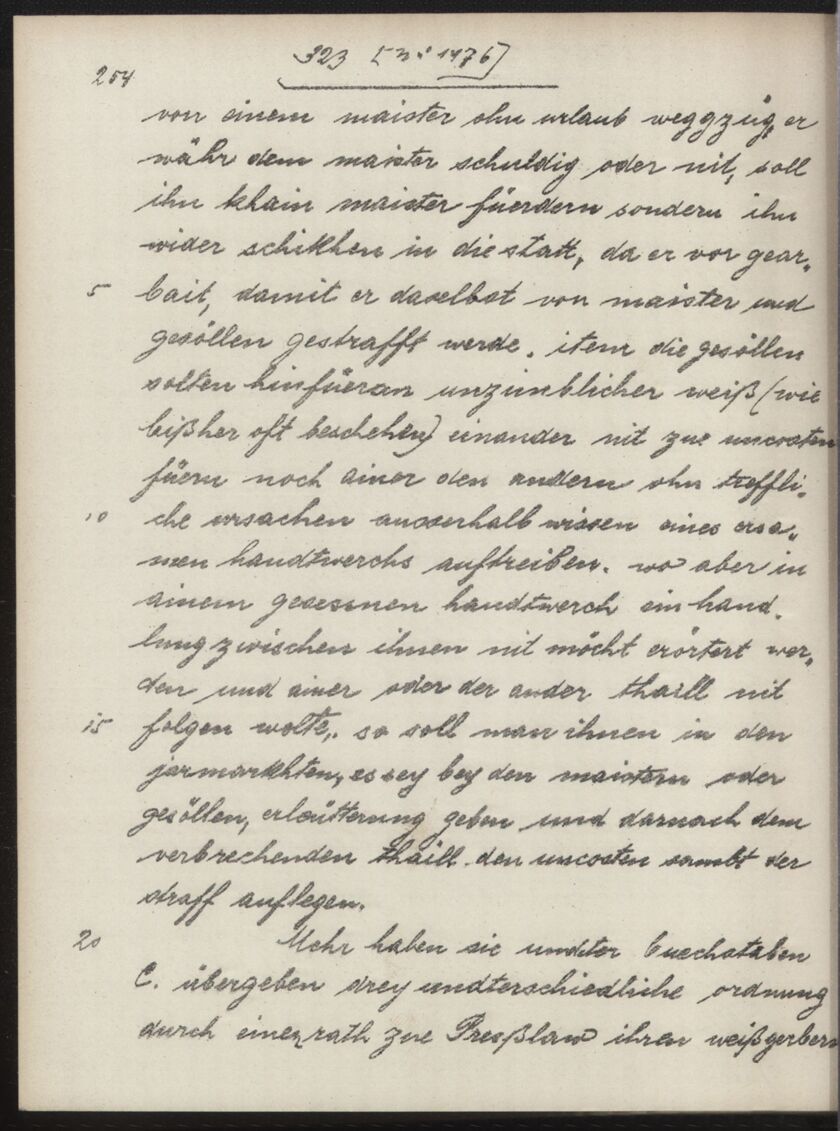 323 [Nr 1476]
254
von einem maister ohn urlaub weggzüg, er
währ dem maister schuldig oder nit, soll
ihn khain maister füerdern sondern ihn
wider schikhen in die statt, da er vor gear„
5 bait, damit er daselbst von maister und
gesöllen gestrafft werde. item die gesöllen
solten hinfüeran unzimblicher weiß (wie
bißher oft beschehen) einander nit zue uncosten
füern noch ainer den andern ohn treffli„
10 che ursachen ausserhalb wissen eines ersa„
men handtwerchs auftreiben. wo aber in
ainem gesessnen handtwerch ein hand„
lung zwischen ihnen nit möcht erörtert wer„
den und ainer oder der ander thaill nit
15 folgen wolte, so soll man ihnen in den
jarmarkhten, es sey bey den maistern oder
gesöllen, erleütterung geben und darnach dem
verbrechenden thaill den uncosten sambt der
straff auflegen.
20 Mehr haben sie undter buechstaben
C. übergeben drey undterschiedliche ordnung
durch einen rath zue Preßlaw ihren weißgerbern